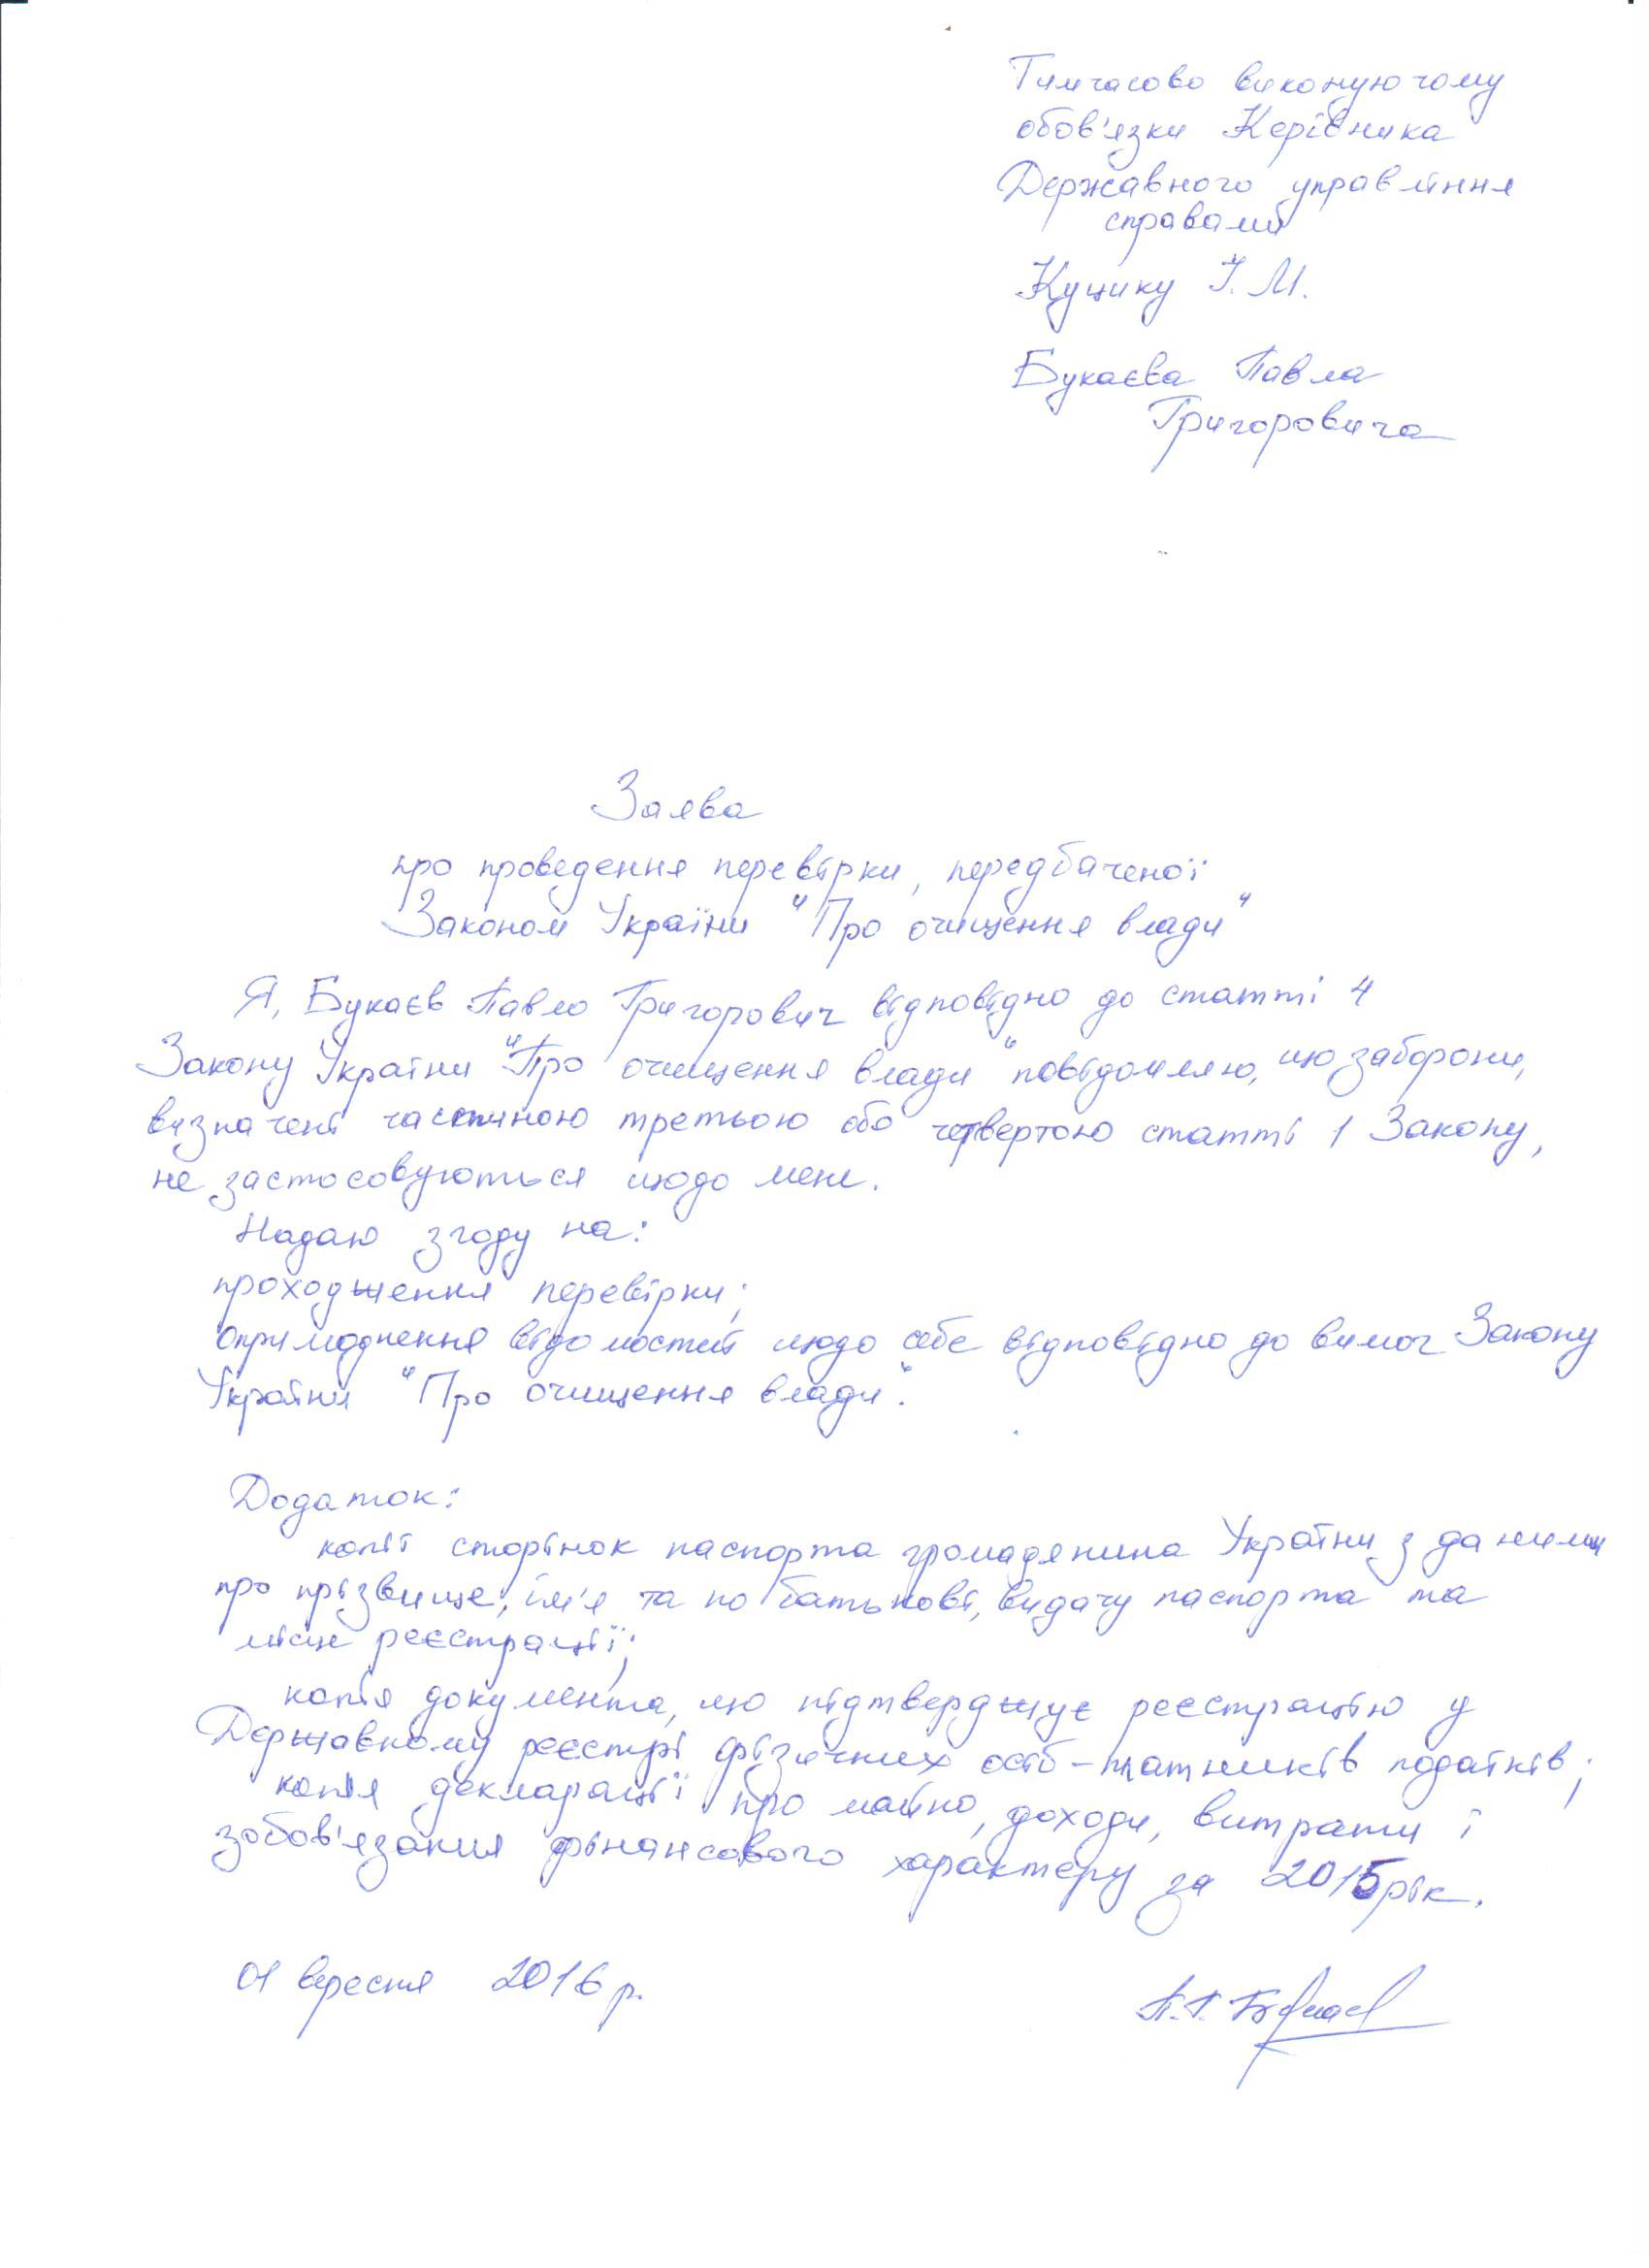 Тимчасово виконуючому
обов'язки Керівника
Державного управління
справами
Куцику І. М.
Букаєва Павла
Григоровича
Заява
про проведення перевірки, передбаченої
Законом України "Про очищення влади"
Я, Букаєв Павло Григорович відповідно до статті 4
Закону України "Про очищення влади" повідомляю, що заборони,
визначені частиною третьою або четвертою статті 1 Закону,
не застосовуються щодо мене.
Надаю згоду на:
проходження перевірки;
оприлюднення відомостей щодо себе відповідно до вимог Закону
України "Про очищення влади".
Додаток:
копії сторінок паспорта громадянина України з даними
про прізвище, ім'я та по батькові, видачу паспорта та
місце реєстрації;
копія документа, що підтверджує реєстрацію у
Державному реєстрі фізичних осіб-платників податків;
копія декларації про майно, доходи, витрати і
зобов'язання фінансового характеру за 2015 рік.
01 вересня 2016 р.
П.Г. Букаєв